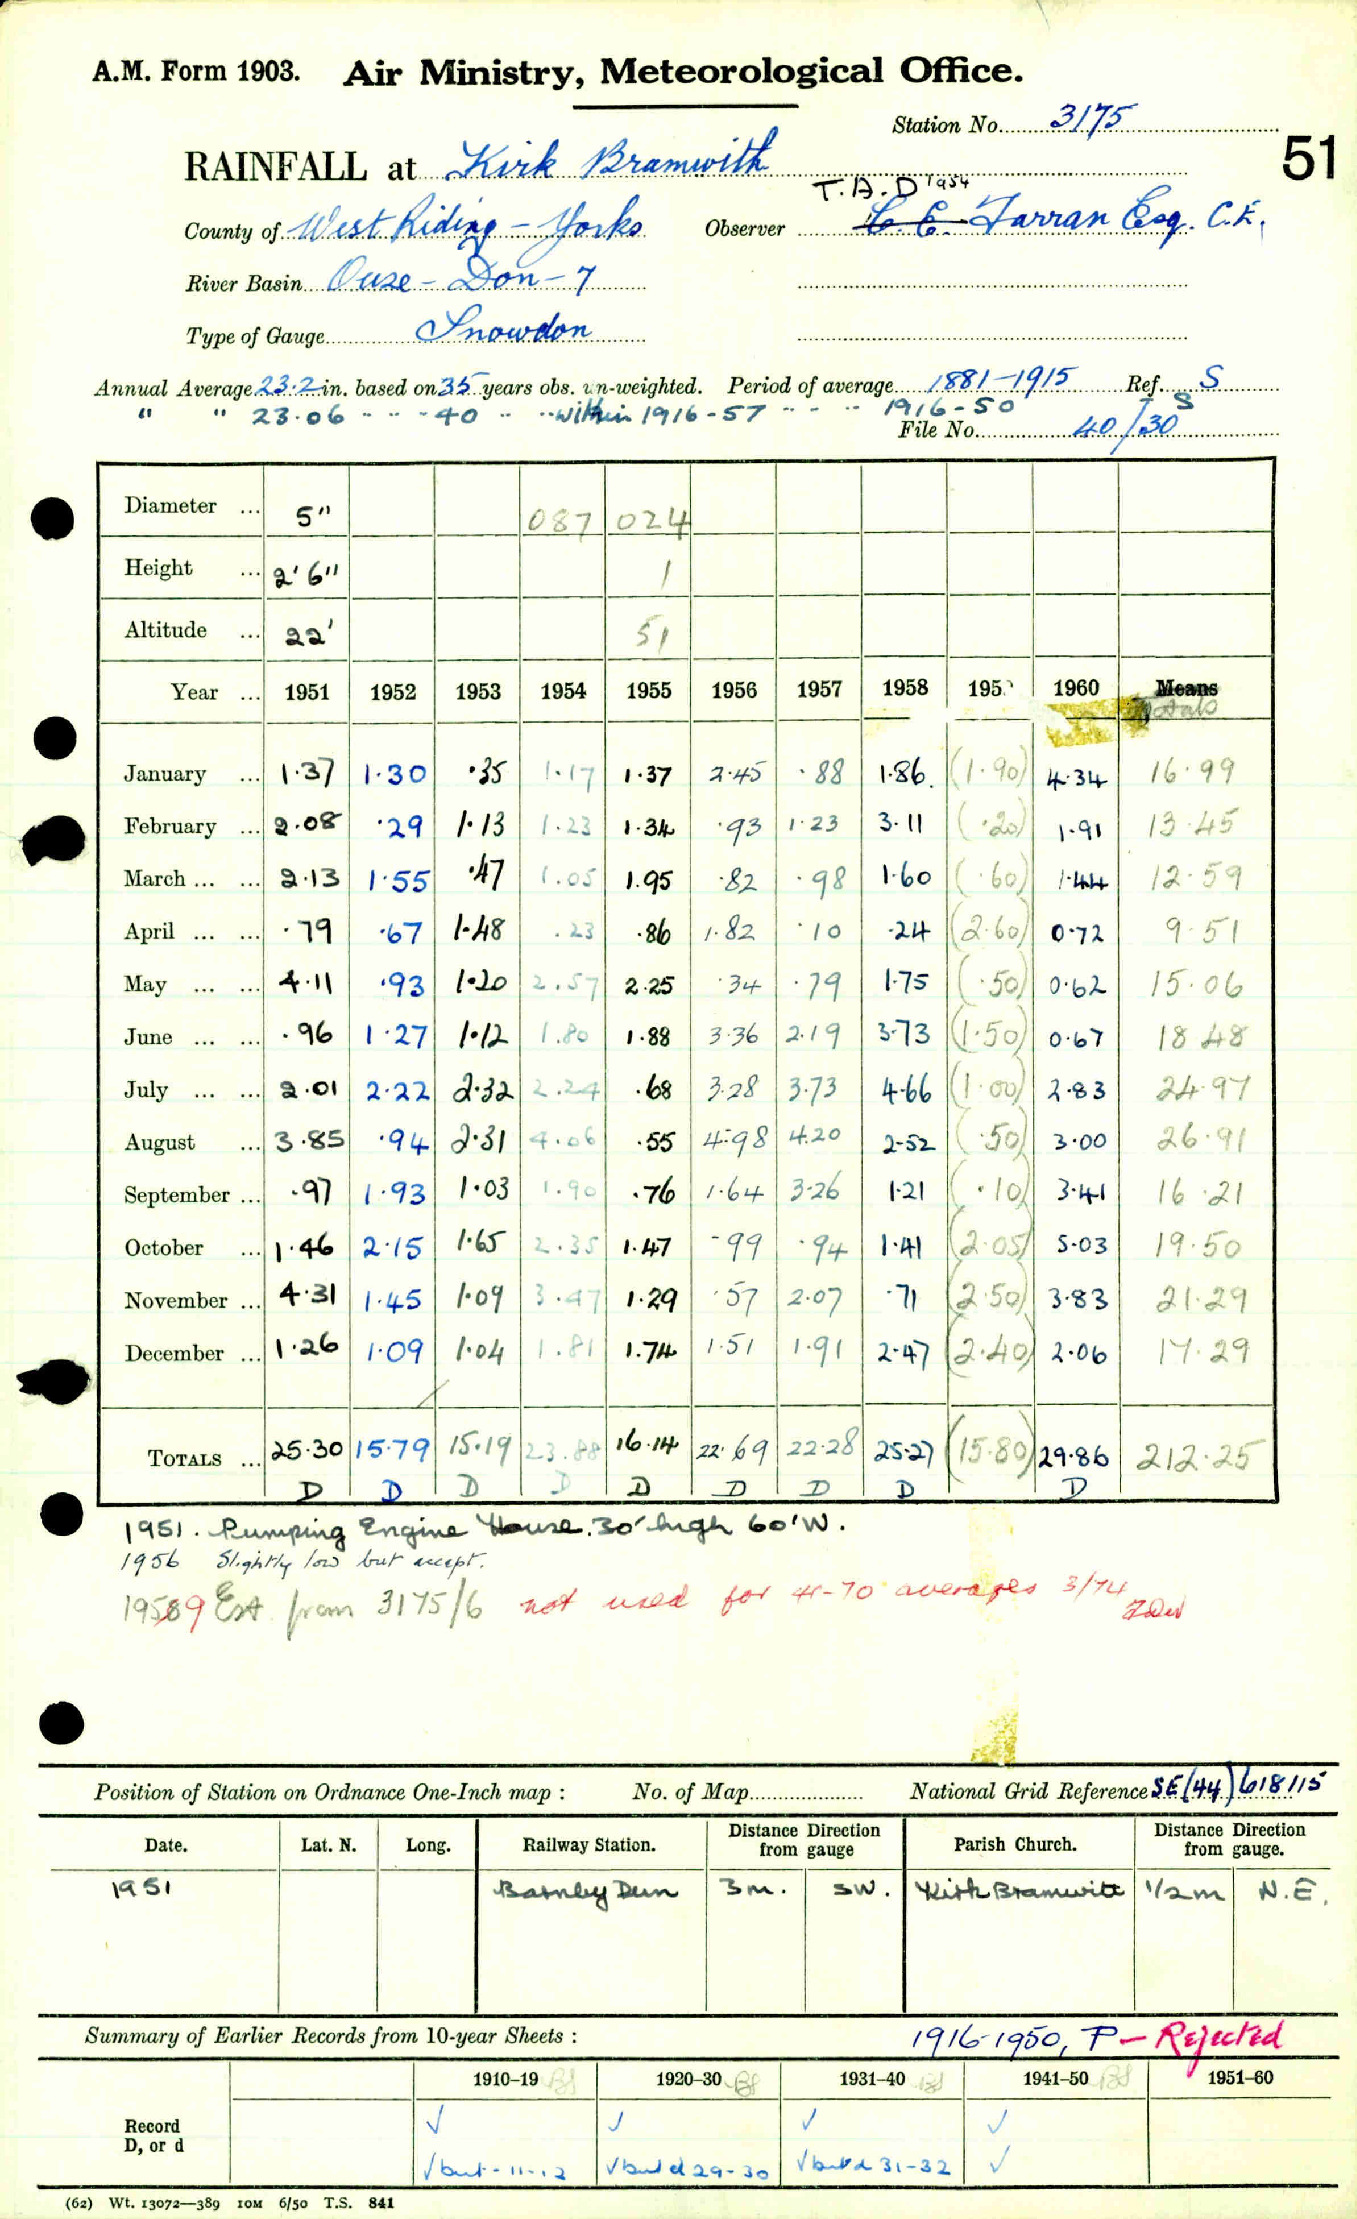 A.M. Form 1903. Air Ministry, Meteorological Office.
Station No. 3175
51
RAINFALL at Kirk Bramwith
T.A.D 1954
County of West Riding - Yorks Observer C. E. Farran Esq. C.E.
River Basin Ouse - Don - 7
Type of Gauge Snowdon
Annual Average 23.2 in. based on 35 years obs. un-weighted. Period of average 1881-1915 Ref. S
" " 23.06 " " 40 " " within 1916-57 " " " 1916-50 S
File No. 40/30
Diameter ... 5" 087 024
Height ... 2' 6" 1
Altitude ... 22' 51
Year ... 1951 1952 1953 1954 1955 1956 1957 1958 195 1960 Means
Totals
January ... 1.37 1.30 .35 1.17 1.37 2.45 .88 1.86 (1.90) 4.34 16.99
February ... 2.08 .29 1.13 1.23 1.34 .93 1.23 3.11 (.20) 1.91 13.45
March ... ... 2.13 1.55 .47 1.05 1.95 .82 .98 1.60 (.60) 1.44 12.59
April ... ... .79 .67 1.48 .23 .86 1.82 .10 .24 (2.60) 0.72 9.51
May ... ... 4.11 .93 1.20 2.57 2.25 .34 .79 1.75 (.50) 0.62 15.06
June ... ... .96 1.27 1.12 1.80 1.88 3.36 2.19 3.73 (1.50) 0.67 18.48
July ... ... 2.01 2.22 2.32 2.24 .68 3.28 3.73 4.66 (1.00) 2.83 24.97
August ... 3.85 .94 2.31 4.06 .55 4.98 4.20 2.52 (.50) 3.00 26.91
September ... .97 1.93 1.03 1.90 .76 1.64 3.26 1.21 (.10) 3.41 16.21
October ... 1.46 2.15 1.65 2.35 1.47 .99 .94 1.41 (2.05) 5.03 19.50
November ... 4.31 1.45 1.09 3.47 1.29 .57 2.07 .71 (2.50) 3.83 21.29
December ... 1.26 1.09 1.04 1.81 1.74 1.51 1.91 2.47 (2.40) 2.06 17.29
TOTALS ... 25.30 15.79 15.19 23.88 16.14 22.69 22.28 25.27 (15.80) 29.86 212.25
D D D D D D D D D
1951. Pumping Engine House. 30' high 60' W.
1956 Slightly low but accept.
1959 Est from 3175/6 not used for 41-70 averages 3/74
Position of Station on Ordnance One-Inch map : No. of Map National Grid Reference SE(44)618115
Date. Lat. N. Long. Railway Station. Distance from Direction gauge Parish Church. Distance from Direction gauge.
1951 Barnby Dun 3m. SW. Kirk Bramwith 1/2m N.E.
Summary of Earlier Records from 10-year Sheets : 1916-1950, P - Rejected
1910–19 BS 1920–30 BS 1931–40 BS 1941–50 BS 1951–60
Record ✓ ✓ ✓ ✓
D, or d ✓ but - 11-12 ✓ but d 29-30 ✓ but d 31-32 ✓
(62) Wt. 13072—389 10M 6/50 T.S. 841